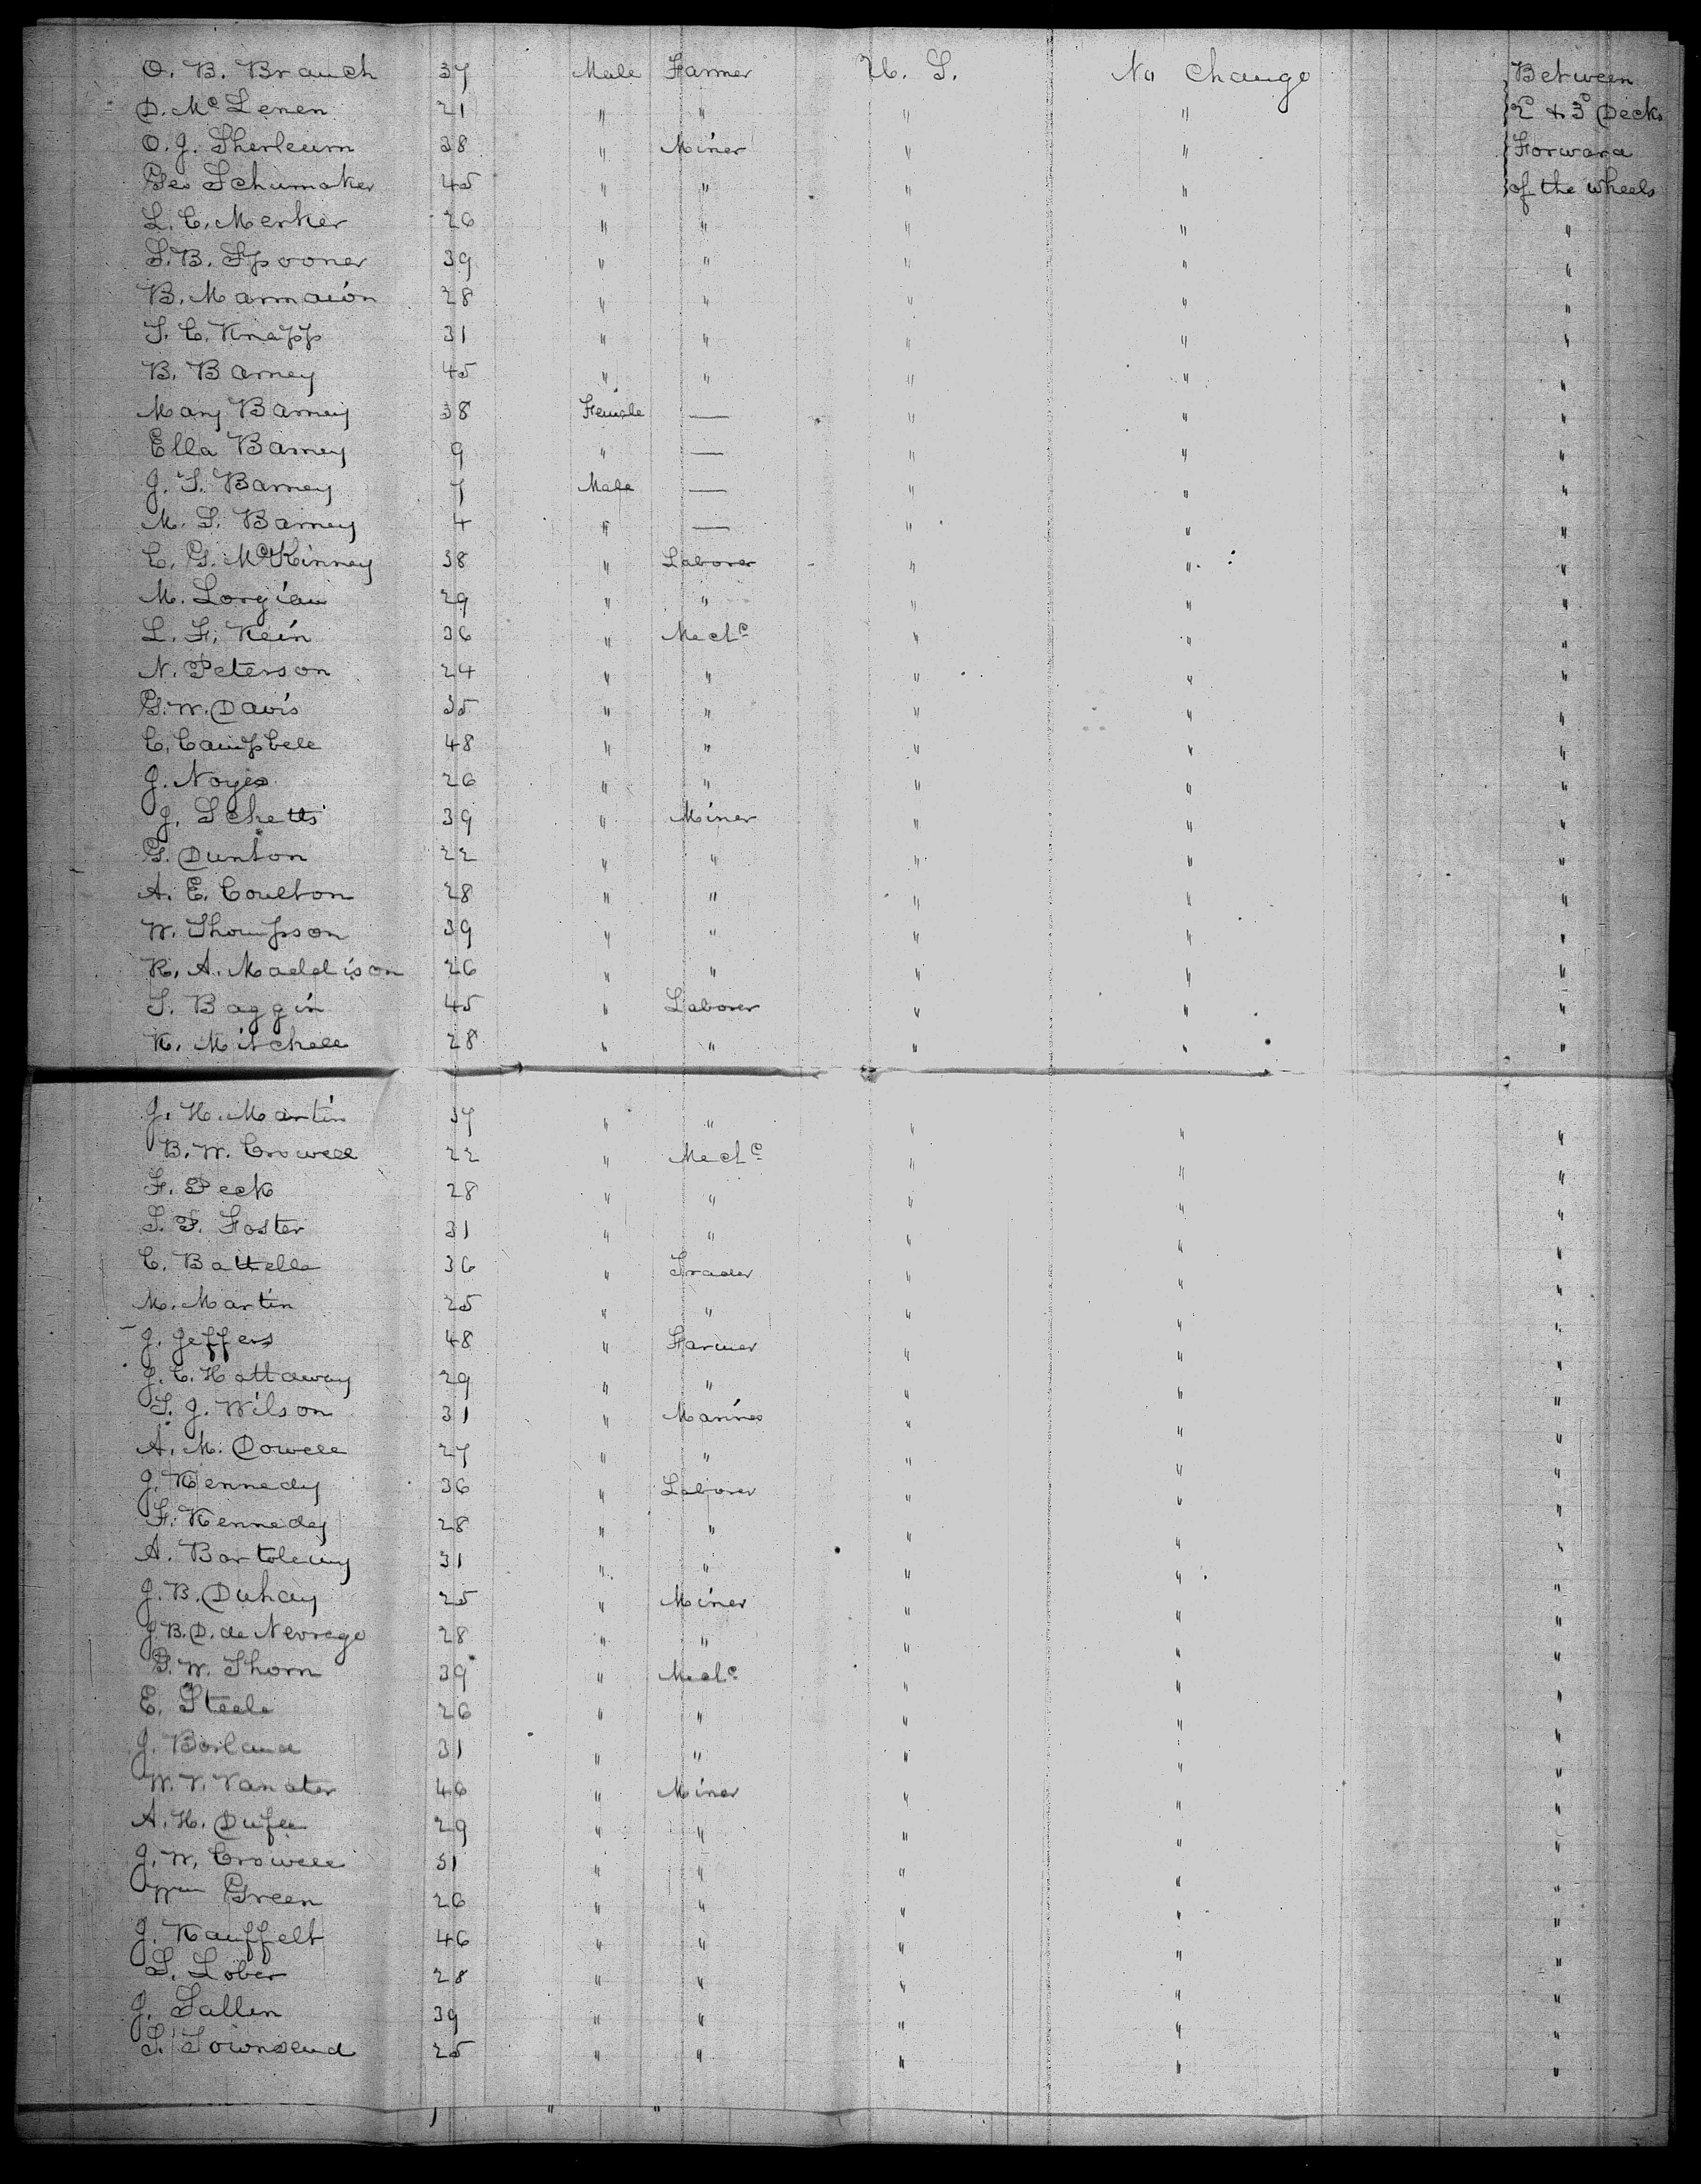 O. B. Branch 37 Male Farmer U. S. No Change Between
D. McLenen 21 " " " " 2d & 3d Decks
O. J. Sherleurn 38 " Miner " " Forward
Geo Schumaker 45 " " " " of the wheels
L. C. Merker 26 " " " " "
S. B. Spooner 39 " " " " "
B. Marmaion 28 " " " " "
S. C. Knapp 31 " " " " "
B. Barney 45 " " " " "
Mary Barney 38 Female — " " "
Ella Barney 9 " — " " "
J. S. Barney 7 Male — " " "
M. S. Barney 4 " — " " "
C. G. McKinney 38 " Laborer " " "
M. Lorgian 29 " " " " "
L. F. Kein 36 " Mechc " " "
N. Peterson 24 " " " " "
G. W. Davis 35 " " " " "
C. Campbell 48 " " " " "
J. Noyes 26 " " " " "
J. Schetts 39 " Miner " " "
G. Dunton 22 " " " " "
A. E. Coulton 28 " " " " "
W. Thompson 39 " " " " "
R. A. Maddison 26 " " " " "
S. Baggin 45 " Laborer " " "
K. Mitchell 28 " " " " "
J. H. Martin 37 " " " " "
B. W. Crowell 22 " Mechc " " "
F. Peck 28 " " " " "
S. P. Foster 31 " " " " "
C. Battelle 36 " Trader " " "
M. Martin 25 " " " " "
J. Jeffers 48 " Farmer " " "
J. C. Hattaway 29 " " " " "
T. J. Wilson 31 " Marine " " "
A. M. Dowell 27 " " " " "
J. Kennedy 36 " Laborer " " "
F. Kennedy 28 " " " " "
A. Bartolemy 31 " " " " "
J. B. Duhay 25 " Miner " " "
J. B. D. de Nevrege 28 " " " " "
G. W. Thorn 39 " Mechc " " "
E. Steele 26 " " " " "
J. Borland 31 " " " " "
W. V. Vanater 46 " Miner " " "
A. H. Dufee 29 " " " " "
J. W. Crowell 31 " " " " "
Wm Green 26 " " " " "
J. Kauffelt 46 " " " " "
S. Lober 28 " " " " "
J. Tallen 39 " " " " "
S. Townsend 25 " " " " "